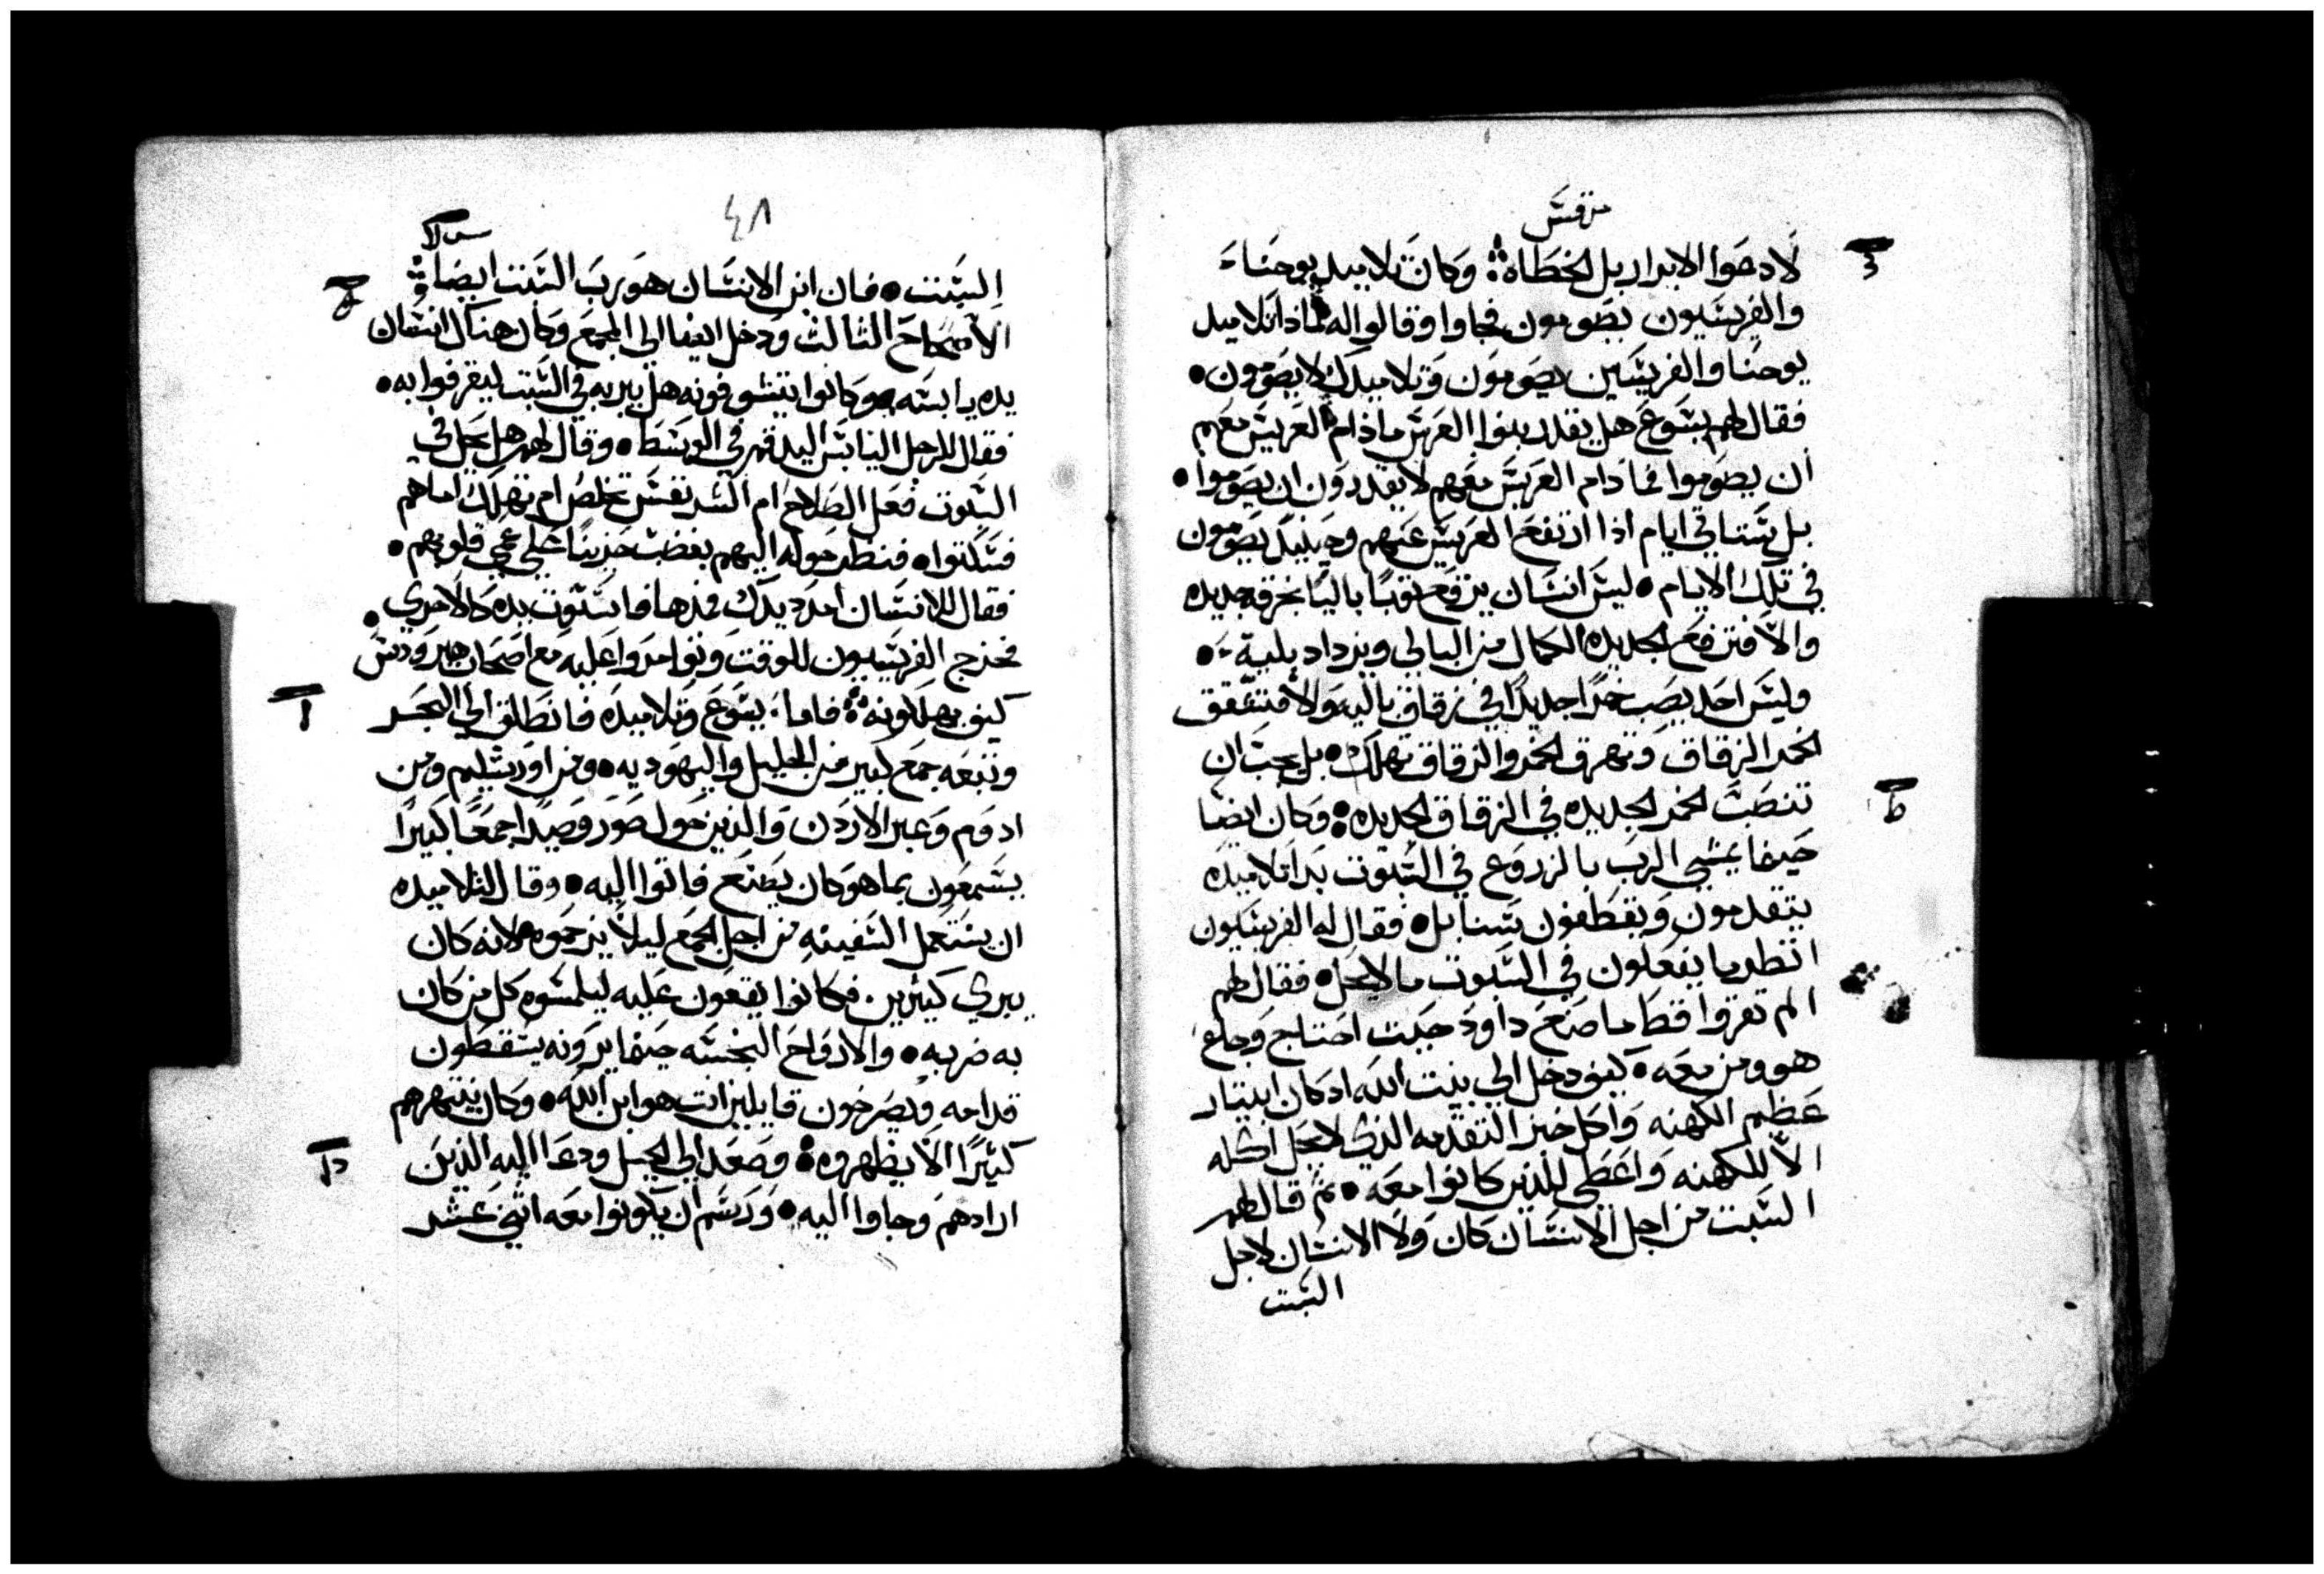 مرقس
لادعوا الابرار بل الخطاه وكان تلاميد يوحنا
والفريسيون يصومون فجاوا وقالوا له لماذا تلاميد
يوحنا والفريسين يصومون وتلاميدك لا يصومون
فقال لهم يسوع هل يقدر بنوا العرس ماذام العريس معهم
ان يصوموا فما دام العريس معهم لا يقدرون ان يصوموا
بل ستاتي ايام اذا ارتفع العريس عنهم وحينيد يصومون
في تلك الايام ليس انسان يرقع توبا باليا بخرقه جديده
والا فترفع الجديده الكمال من البالي ويزداد بلية
وليس احد يصب خمرا جديدا في زقاق باليه والا فتشقق
الخمر الزقاق وتهرق الخمر والزقاق تهلك بل يجب ان
تنصب الخمر الجديده في الزقاق الجديده وكان ايضا
ط
حيفا يمشي الرب بالزروع في السبوت بدا تلاميده
يتقدمون ويقطفون سنابل فقال له الفريسيون
انظر ما يفعلون في السبوت ما لا يحل فقال لهم
الم تقروا قط ما صنع داود حيت احتاج وجاع
هو ومن معه كيف دخل الي بيت الله اد كان ابيتار
عظم الكهنه واكل خبز التقدمه الذي لا يحل اكله
الا للكهنه واعطي للذين كانوا معه ثم قال لهم
السبت من اجل الانسان كان ولا الانسان لاجل
السبت
٤٨
السبت فان ابن الانسان هو رب السبت ايضا
الاصحاح الثالث ودخل ايضا الي المجمع وكان هناك انسان
يده يابسه وكانوا يتشوفونه هل يبريه في السبت ليقرفوا به
فقال للرجل اليابس اليد قم في الوسط وقال لهم هل يحل في
السبوت فعل الصلاح ام الشر نفس تخلص ام تهلك اما هم
فسكتوا فنظر حوله اليهم بغضب حزينا علي عمي قلوبهم
فقال للانسان امدد يدك فمدها فاستوت يده كالاخري
فخرج الفريسيون للوقت وتوامروا عليه مع اصحاب هيرودس
كيف يهلكونه فاما يسوع وتلاميده فانطلق الي البحر
وتبعه جمع كبير من الجليل واليهوديه ومن اورشليم ومن
ادوم وعبر الاردن والذين حول صور وصيدا جمعا كبيرا
يسمعون بما هو كان يصنع فاتوا اليه وقال لتلاميده
ان يستعمل السفينه من اجل الجمع ليلا يزحموه لانه كان
يبري كثيرين فكانوا يقعون عليه ليلمسوه كل من كان
به ضربه والارواح النجسه حيفا يرونه يسقطون
قدامه ويصرخون قايلين انت هو ابن الله وكان ينتهرهم
كثيرا الا يظهروه وصعد الي الجبل ودعا اليه الذين
ارادهم وجاوا اليه ورسم ان يكونوا معه اثني عشر